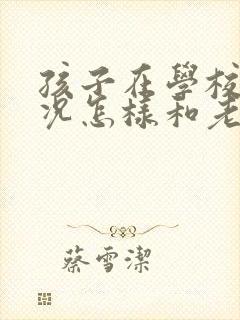 孩子在學校
況怎樣和老
蔡雪潔